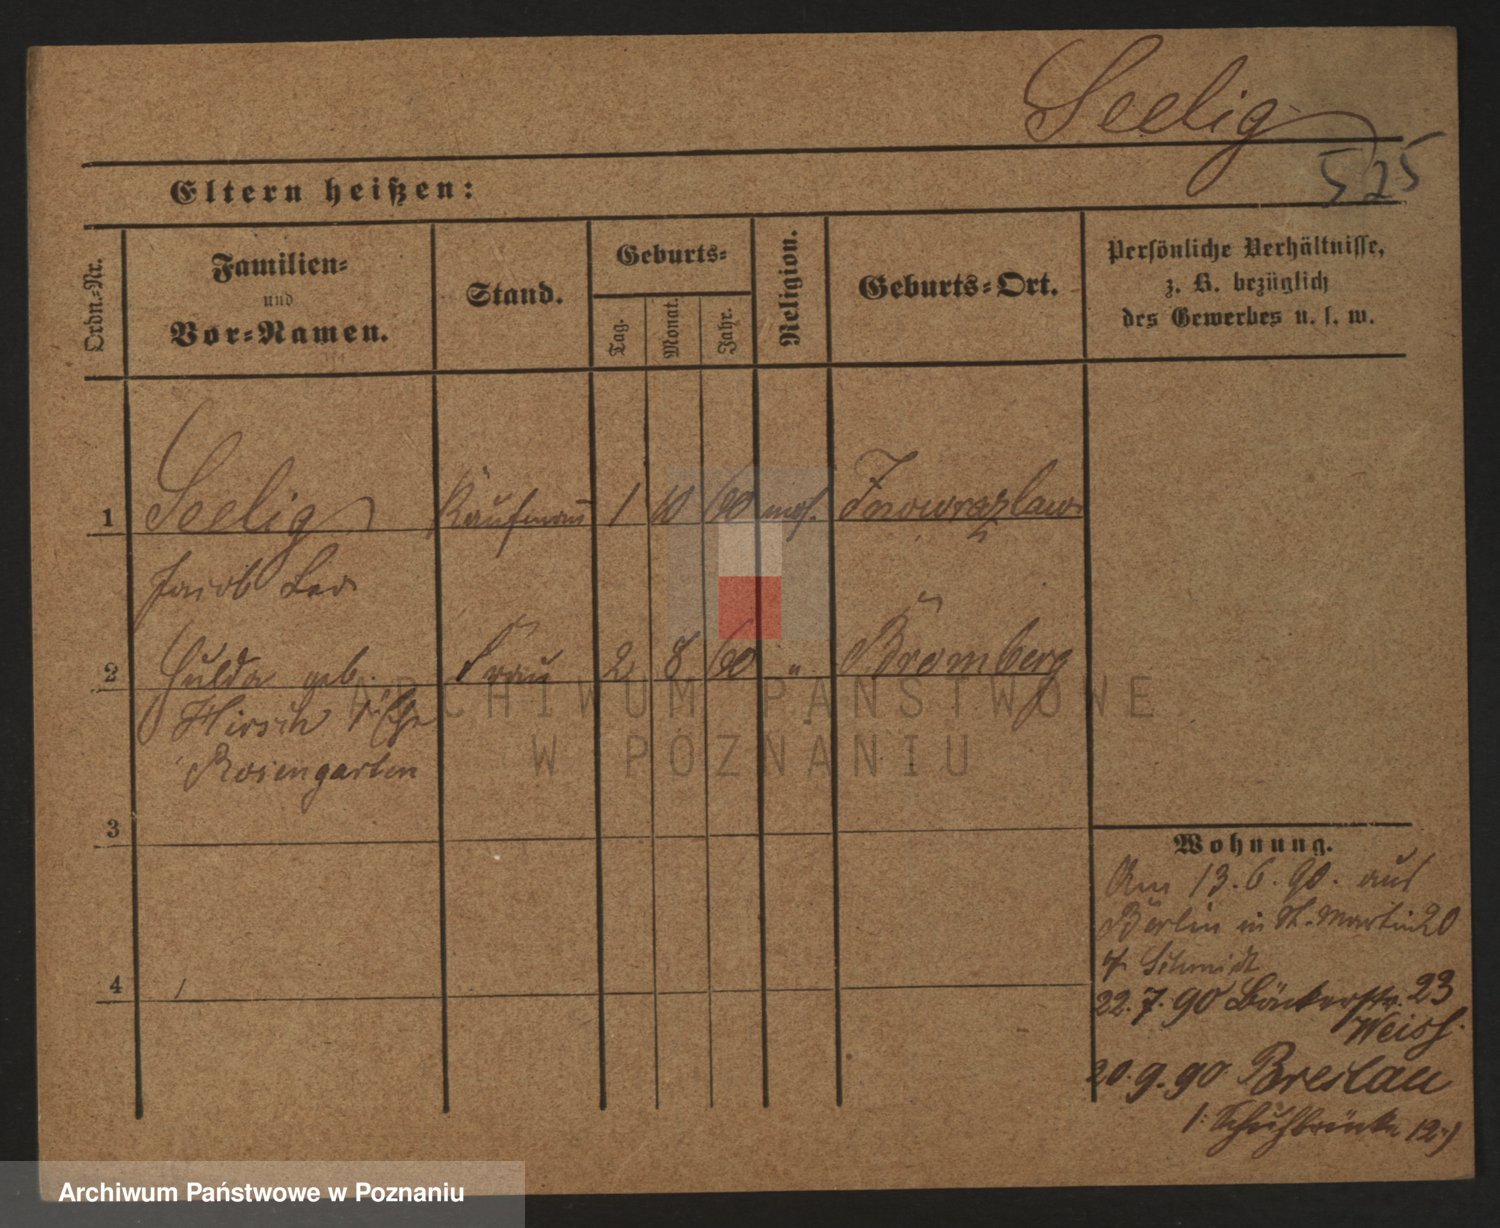 Seelig
525
Eltern heißen:
Ordn.=Nr.
Familien=
und
Vor=Namen.
Stand.
Geburts=
Tag.
Monat.
Jahr.
Religion.
Geburts=Ort.
Persönliche Verhältnisse,
z. B. bezüglich
des Gewerbes u. s. w.
1 Seelig Kaufmann 1 10 60 mos. Inowrazlaw
Jacob Leo
2 Hulda geb. Frau 2 8 60 " Bromberg
Hirsch
Rosengarten
3
4
Wohnung.
Am 13.6.90. aus
Berlin in St. Martin 20
Schmidt
22.7.90 Bäckerstr. 23
Weiss.
20.9.90 Breslau
Schuhbrücke 12
ARCHIWUM PAŃSTWOWE
W POZNANIU
Archiwum Państwowe w Poznaniu